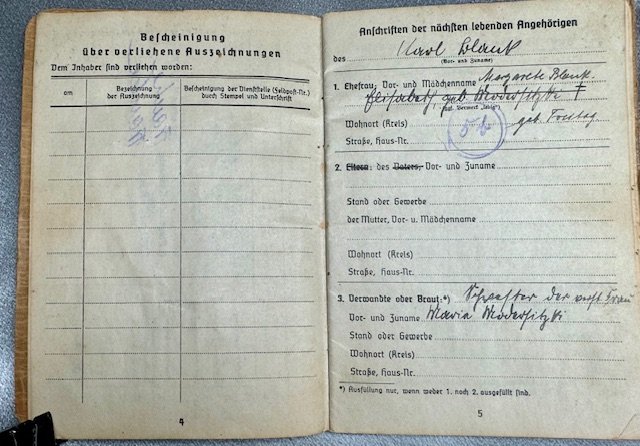 Bescheinigung
über verliehene Auszeichnungen
Dem Inhaber sind verliehen worden:
am
Bezeichnung
der Auszeichnung
Bescheinigung der Dienststelle (Feldpost-Nr.)
durch Stempel und Unterschrift
4
Anschriften der nächsten lebenden Angehörigen
des Karl Blank
(Vor- und Zuname)
1. Ehefrau: Vor- und Mädchenname Margarete Blank
Elisabeth, geb. Modersitzki †
(ggf. Vermerk „ledig“)
geb. Freitag
Wohnort (Kreis)
Straße, Haus-Nr.
2. Eltern: des Vaters, Vor- und Zuname
Stand oder Gewerbe
der Mutter, Vor- u. Mädchenname
Wohnort (Kreis)
Straße, Haus-Nr.
3. Verwandte oder Braut:*) Schwester der verst. Frau
Vor- und Zuname Maria Modersitzki
Stand oder Gewerbe
Wohnort (Kreis)
Straße, Haus-Nr.
*) Ausfüllung nur, wenn weder 1. noch 2. ausgefüllt sind.
5